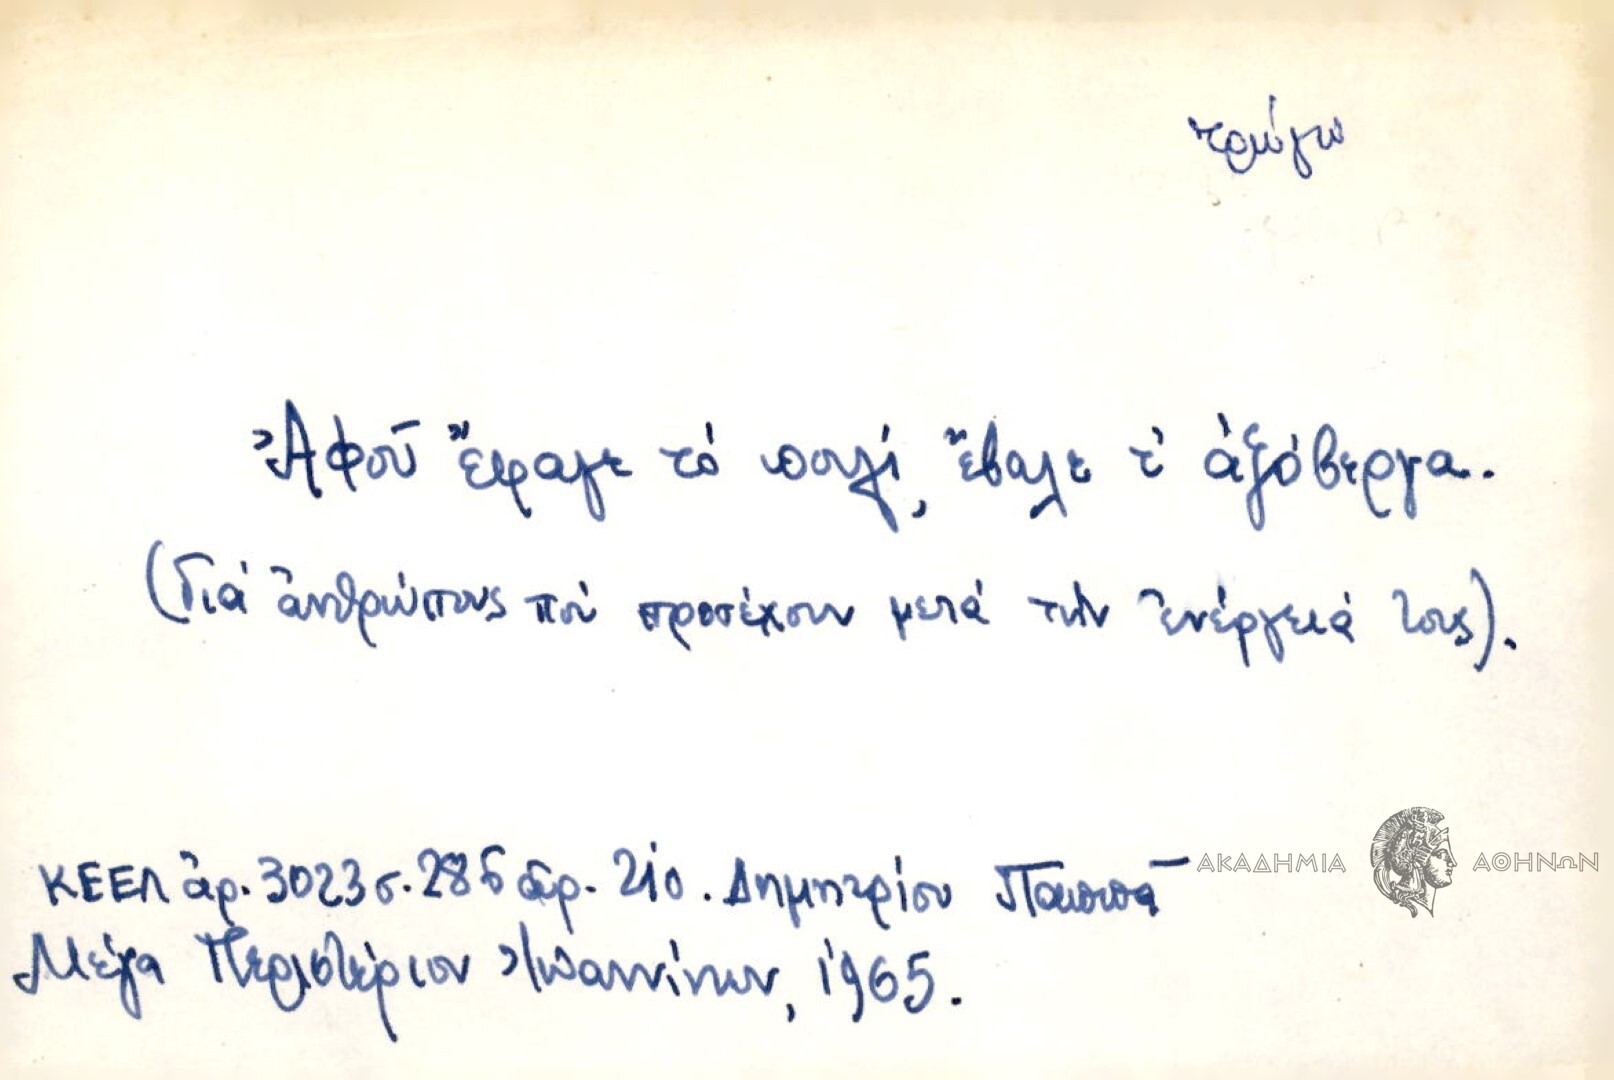 τρώγω
Ἀφοῦ ἔφαγε τό πουλί, ἔβαλε τ' ἀξόβεργα.
(Γιά ἀνθρώπους πού προσέχουν μετά τήν ἐνέργειά τους).
ΚΕΕΛ ἀρ. 3023 σ. 286 ἀρ. 210. Δημητρίου Παππᾶ
Μέγα Περιστέριον Ἰωαννίνων, 1965.
ΑΚΑΔΗΜΙΑ ΑΘΗΝΩΝ